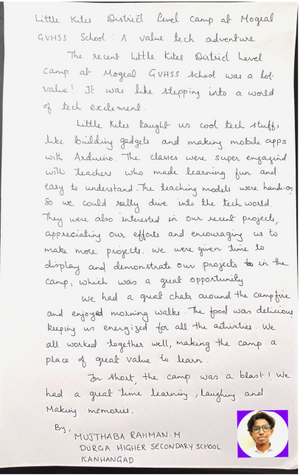 Little Kites District Level Camp at Mogral
GVHSS School : A value tech adventure
The recent Little Kites District Level
Camp at Mogral GVHSS school was a lot
value! It was like stepping into a world
of tech excitement.
Little Kites taught us cool tech stuff,
like building gadgets and making mobile apps
with Arduino. The classes were super engaging
with teachers who made learning fun and
easy to understand. The teaching models were hands-on,
so we could really dive into the tech world.
They were also interested in our recent projects,
appreciating our efforts and encouraging us to
make more projects. We were given time to
display and demonstrate our projects in the
camp, which was a great opportunity
We had a great chats around the campfire
and enjoyed morning walks. The food was delicious
keeping us energized for all the activities. We
all worked together well, making the camp a
place of great value to learn.
In short, the camp was a blast! We
had a great time learning, laughing and
Making memories.
By,
MUJTHABA RAHMAN. M
DURGA HIGHER SECONDARY SCHOOL
KANHANGAD